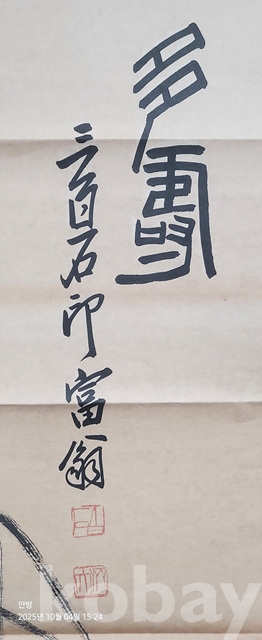 多壽
三百石印富翁
안방
2025년 10월 04일 15:24
kobay